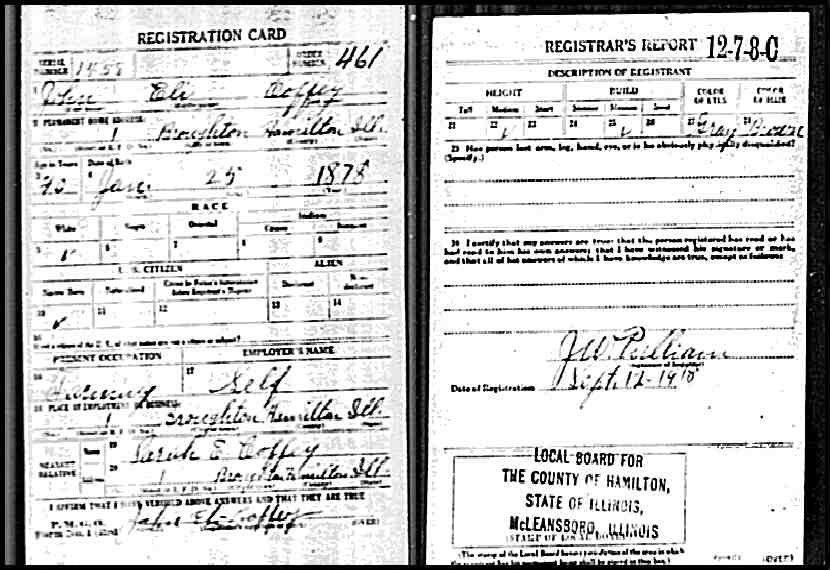 REGISTRATION CARD
SERIAL NUMBER 1458 ORDER NUMBER 461
John Eli Coffey
PERMANENT HOME ADDRESS:
1 Broughton Hamilton Ill.
Age in Years Date of Birth
40 Jan. 25 1878
RACE
White Negro Oriental Indian
Citizen
5 ✓ 6 7 8 9
U. S. CITIZEN ALIEN
Native Born Naturalized Citizen by Father's Naturalization Before Registrant's Majority Declarant Non-declarant
10 ✓ 11 12 13 14
15
PRESENT OCCUPATION EMPLOYER'S NAME
16 Farming 17 Self
18 PLACE OF EMPLOYMENT OR BUSINESS:
1 Broughton Hamilton Ill.
NEAREST RELATIVE Name 19 Sarah E. Coffey
Address 20 1 Broughton Hamilton Ill
I AFFIRM THAT I HAVE VERIFIED ABOVE ANSWERS AND THAT THEY ARE TRUE
P. M. G. O.
Form No. 1 (Red) John Eli Coffey (OVER)
REGISTRAR'S REPORT 12-7-8-C
DESCRIPTION OF REGISTRANT
HEIGHT BUILD COLOR OF EYES COLOR OF HAIR
Tall Medium Short Slender Medium Stout
21 22 ✓ 23 24 25 ✓ 26 27 Gray 28 Brown
29 Has person lost arm, leg, hand, eye, or is he obviously physically disqualified?
(Specify.)
30 I certify that my answers are true; that the person registered has read or has
had read to him his own answers; that I have witnessed his signature or mark,
and that all of his answers of which I have knowledge are true, except as follows:
J.W. Pulliam
(Signature of Registrar)
Date of Registration Sept. 12-1918
LOCAL BOARD FOR
THE COUNTY OF HAMILTON,
STATE OF ILLINOIS,
McLEANSBORO, ILLINOIS
(STAMP OF LOCAL BOARD)
(The stamp of the Local Board having jurisdiction of the area in which
the registrant has his permanent home shall be placed in this box.)
(OVER)